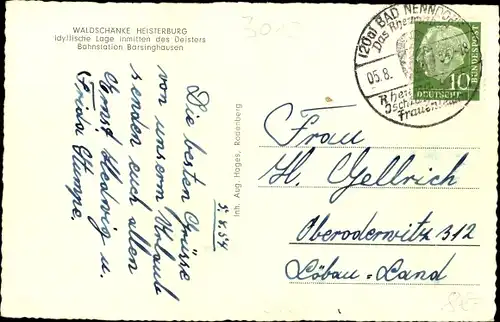 WALDSCHÄNKE HEISTERBURG
Idyllische Lage inmitten des Deisters
Bahnstation Barsinghausen
Die besten Grüsse
von unserm Urlaub
senden euch allen
Ernst Hedwig u.
Frieda Stumpe.
5.8.54
Inh. Aug. Hages, Rodenberg
(20a) BAD NENNDORF
Das Rheuma
05.8.
Rheuma
Ischias
Frauenleiden
DEUTSCHE
BUNDESPOST
10
Frau
H. Gellrich
Oberoderwitz 312
Löbau-Land